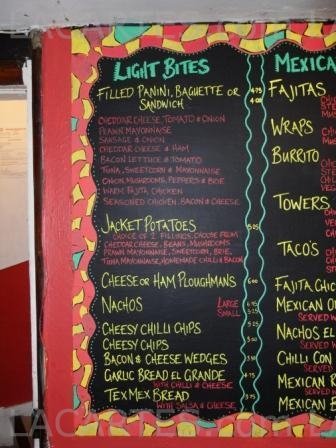 LIGHT BITES
FILLED PANINI, BAGUETTE OR 4.75
SANDWICH 4.00
CHEDDAR CHEESE, TOMATO & ONION
PRAWN MAYONNAISE
SAUSAGE & ONION
CHEDDAR CHEESE & HAM
BACON LETTUCE & TOMATO
TUNA, SWEETCORN & MAYONNAISE
ONION, MUSHROOMS, PEPPERS & BRIE
WARM FAJITA CHICKEN
SEASONED CHICKEN, BACON & CHEESE
JACKET POTATOES 5.25
CHOICE OF 2 FILLINGS, CHOOSE FROM
CHEDDAR CHEESE, BEANS, MUSHROOMS
PRAWN MAYONNAISE, SWEETCORN, BRIE,
TUNA MAYONNAISE, HOMEMADE CHILLI & BACON
CHEESE OR HAM PLOUGHMANS 6.00
NACHOS LARGE 6.95
SMALL
CHEESY CHILLI CHIPS
CHEESY CHIPS
BACON & CHEESE WEDGES
GARLIC BREAD EL GRANDE
WITH CHILLI & CHEESE
TEX MEX BREAD
WITH SALSA & CHEESE
MEXICA
FAJITAS
WRAPS
BURRITO
TOWERS
TACO'S
FAJITA CHIC
MEXICAN O
SERVED W
NACHOS EL
CHILLI CON
SERVED
MEXICAN R
SERVED W
MEXICAN B